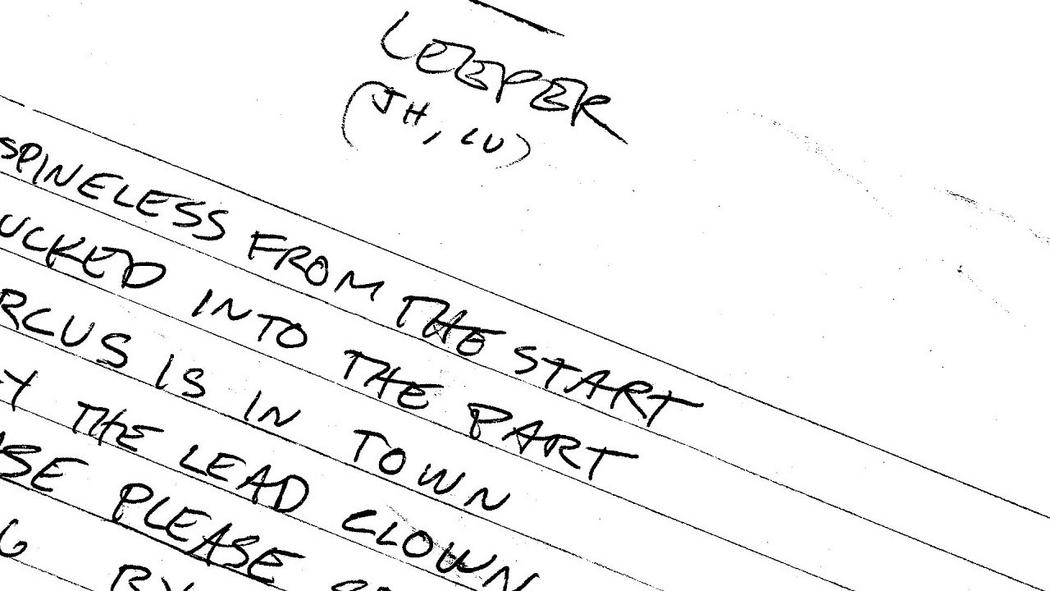 LEEPER
(JH, LU)
SPINELESS FROM THE START
UCKED INTO THE PART
RCUS IS IN TOWN
Y THE LEAD CLOWN
SE PLEASE
BY